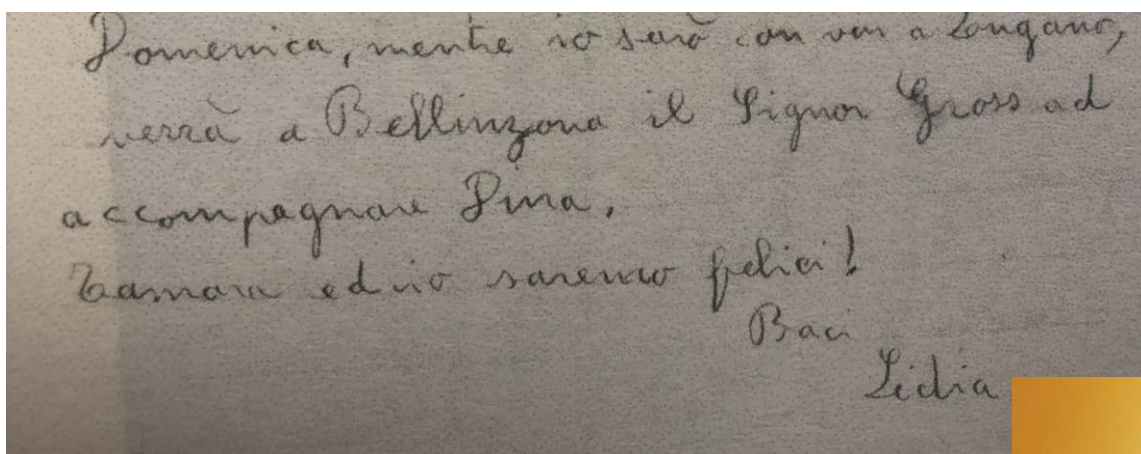 Domenica, mentre io sarò con voi a Longano,
verrà a Bellinzona il Signor Gross ad
accompagnare Dina.
Tamara ed io saremo felici!
Baci
Lidia